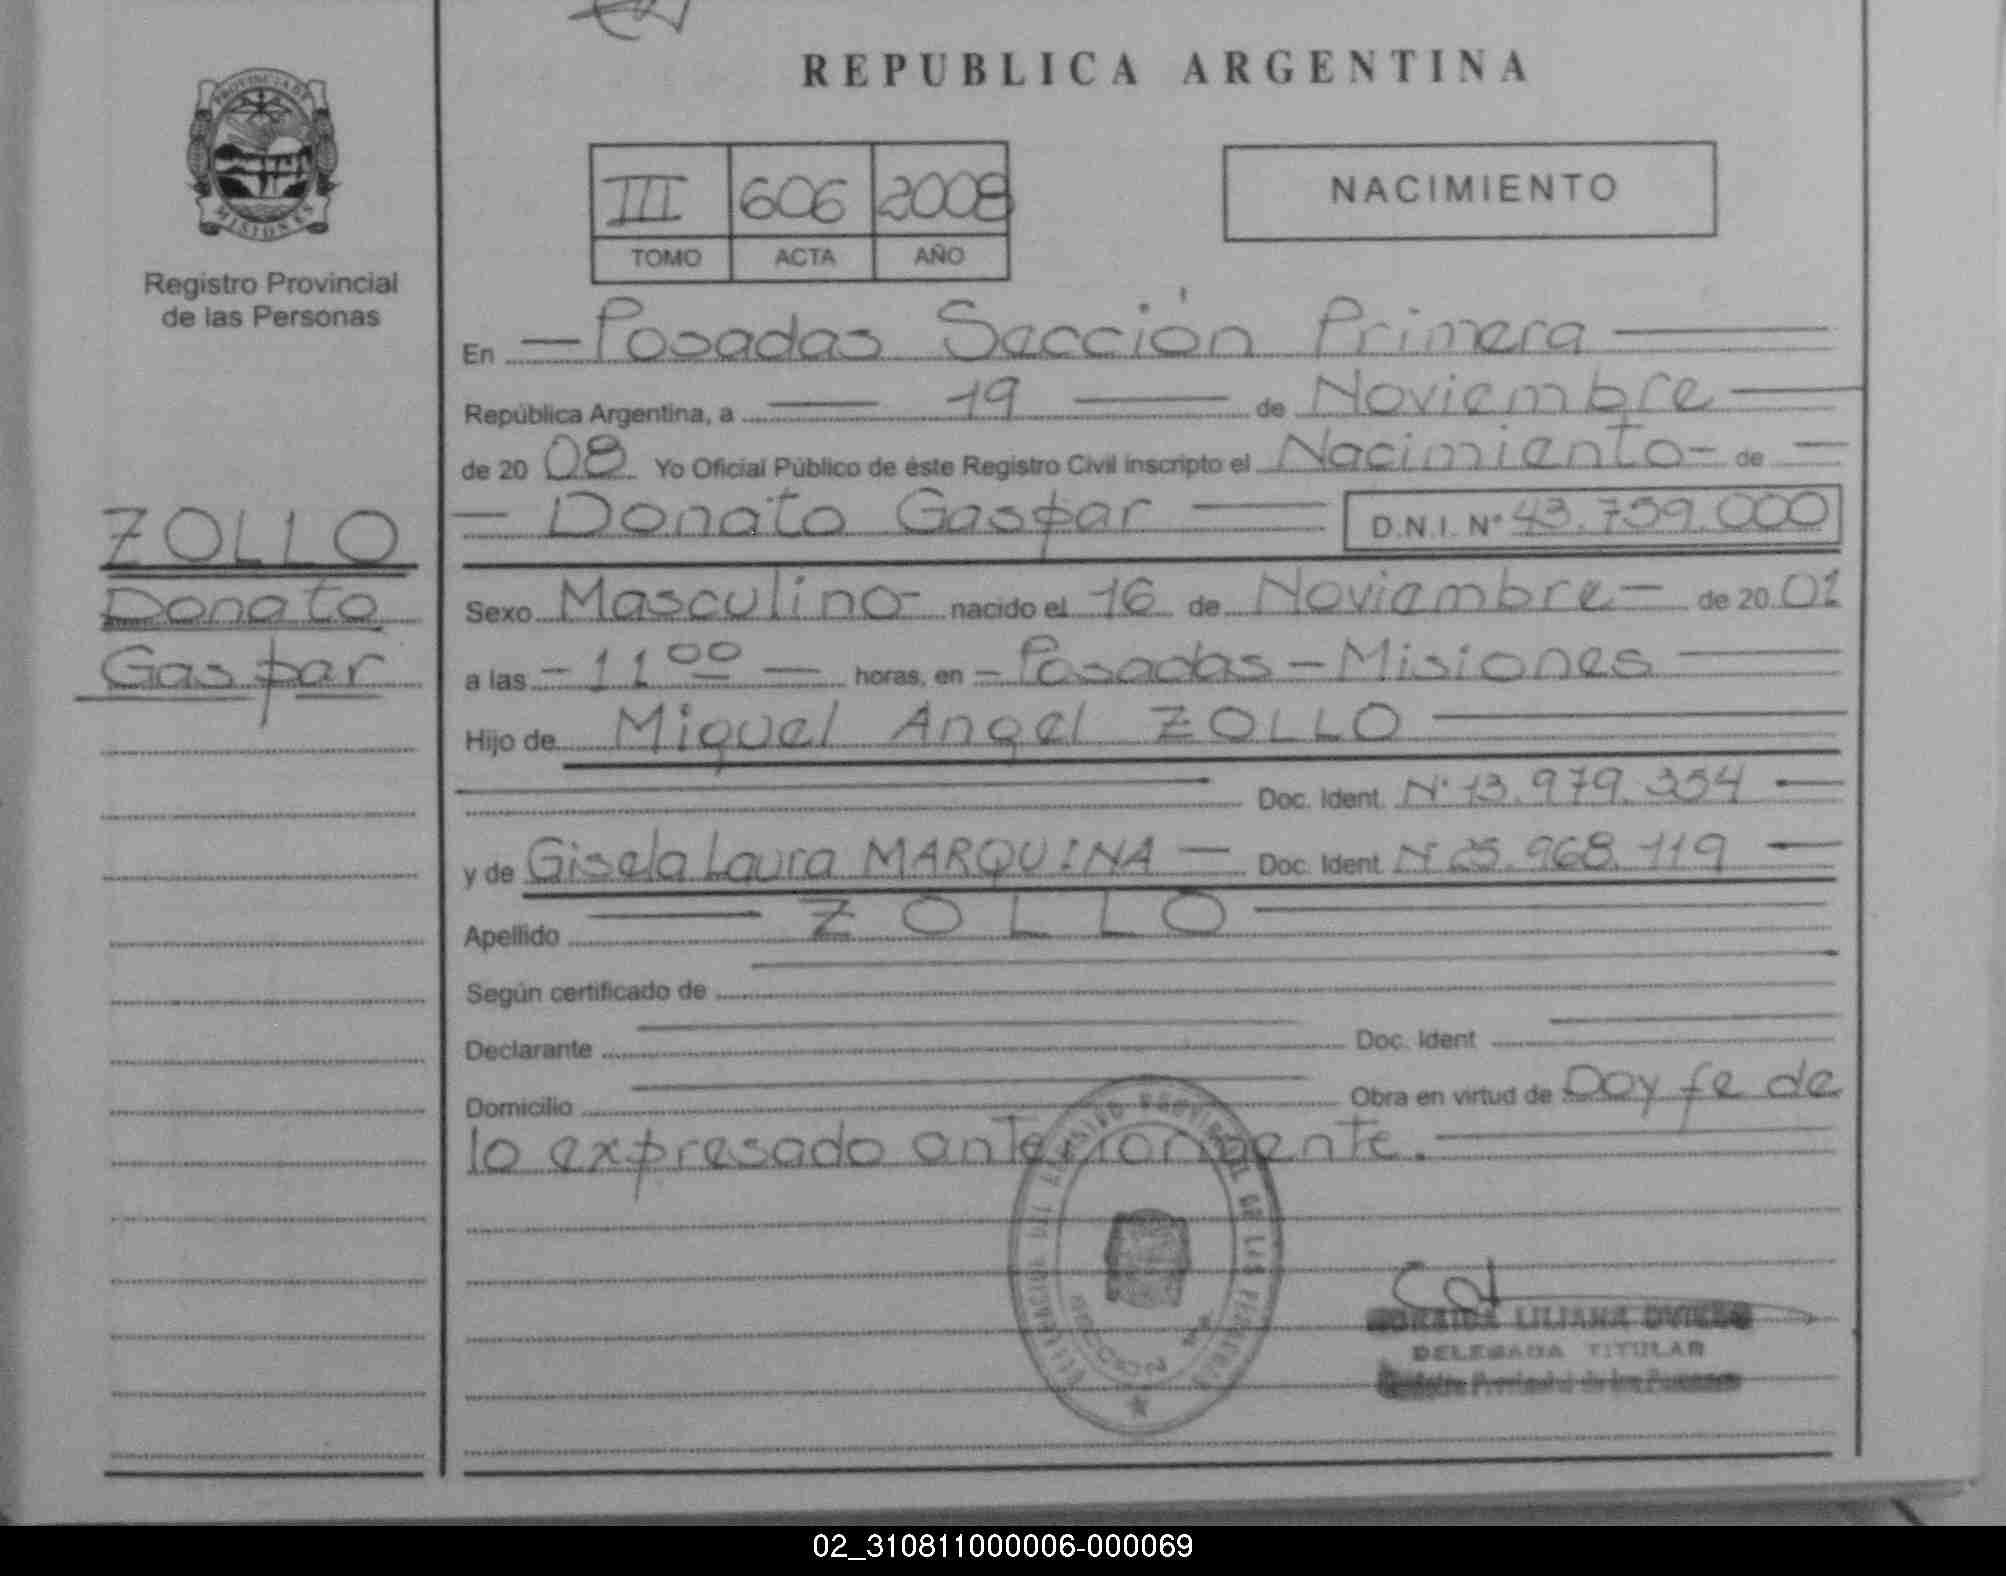 REPUBLICA ARGENTINA
PROVINCIA DE
MISIONES
Registro Provincial
de las Personas
III 606 2008
TOMO ACTA AÑO
NACIMIENTO
En — Posadas Sección Primera —
República Argentina, a — 19 — de Noviembre —
de 20 08 Yo Oficial Público de éste Registro Civil inscripto el Nacimiento — de —
— Donato Gaspar — D.N.I. N° 43.759.000
ZOLLO
Donato
Gaspar
Sexo Masculino — nacido el 16 de Noviembre — de 20 01
a las — 11 00 — horas, en — Posadas — Misiones —
Hijo de Miguel Angel ZOLLO —
Doc. Ident. N° 13.979.354 —
y de Gisela Laura MARQUINA — Doc. Ident. N° 25.968.119 —
Apellido — ZOLLO —
Según certificado de
Declarante Doc. Ident
Domicilio Obra en virtud de Doy fe de
lo expresado anteriormente. —
REGISTRO PROVINCIAL DE LAS PERSONAS
LILIANA
DELEGADA TITULAR
Registro Provincial de las Personas
02_310811000006-000069